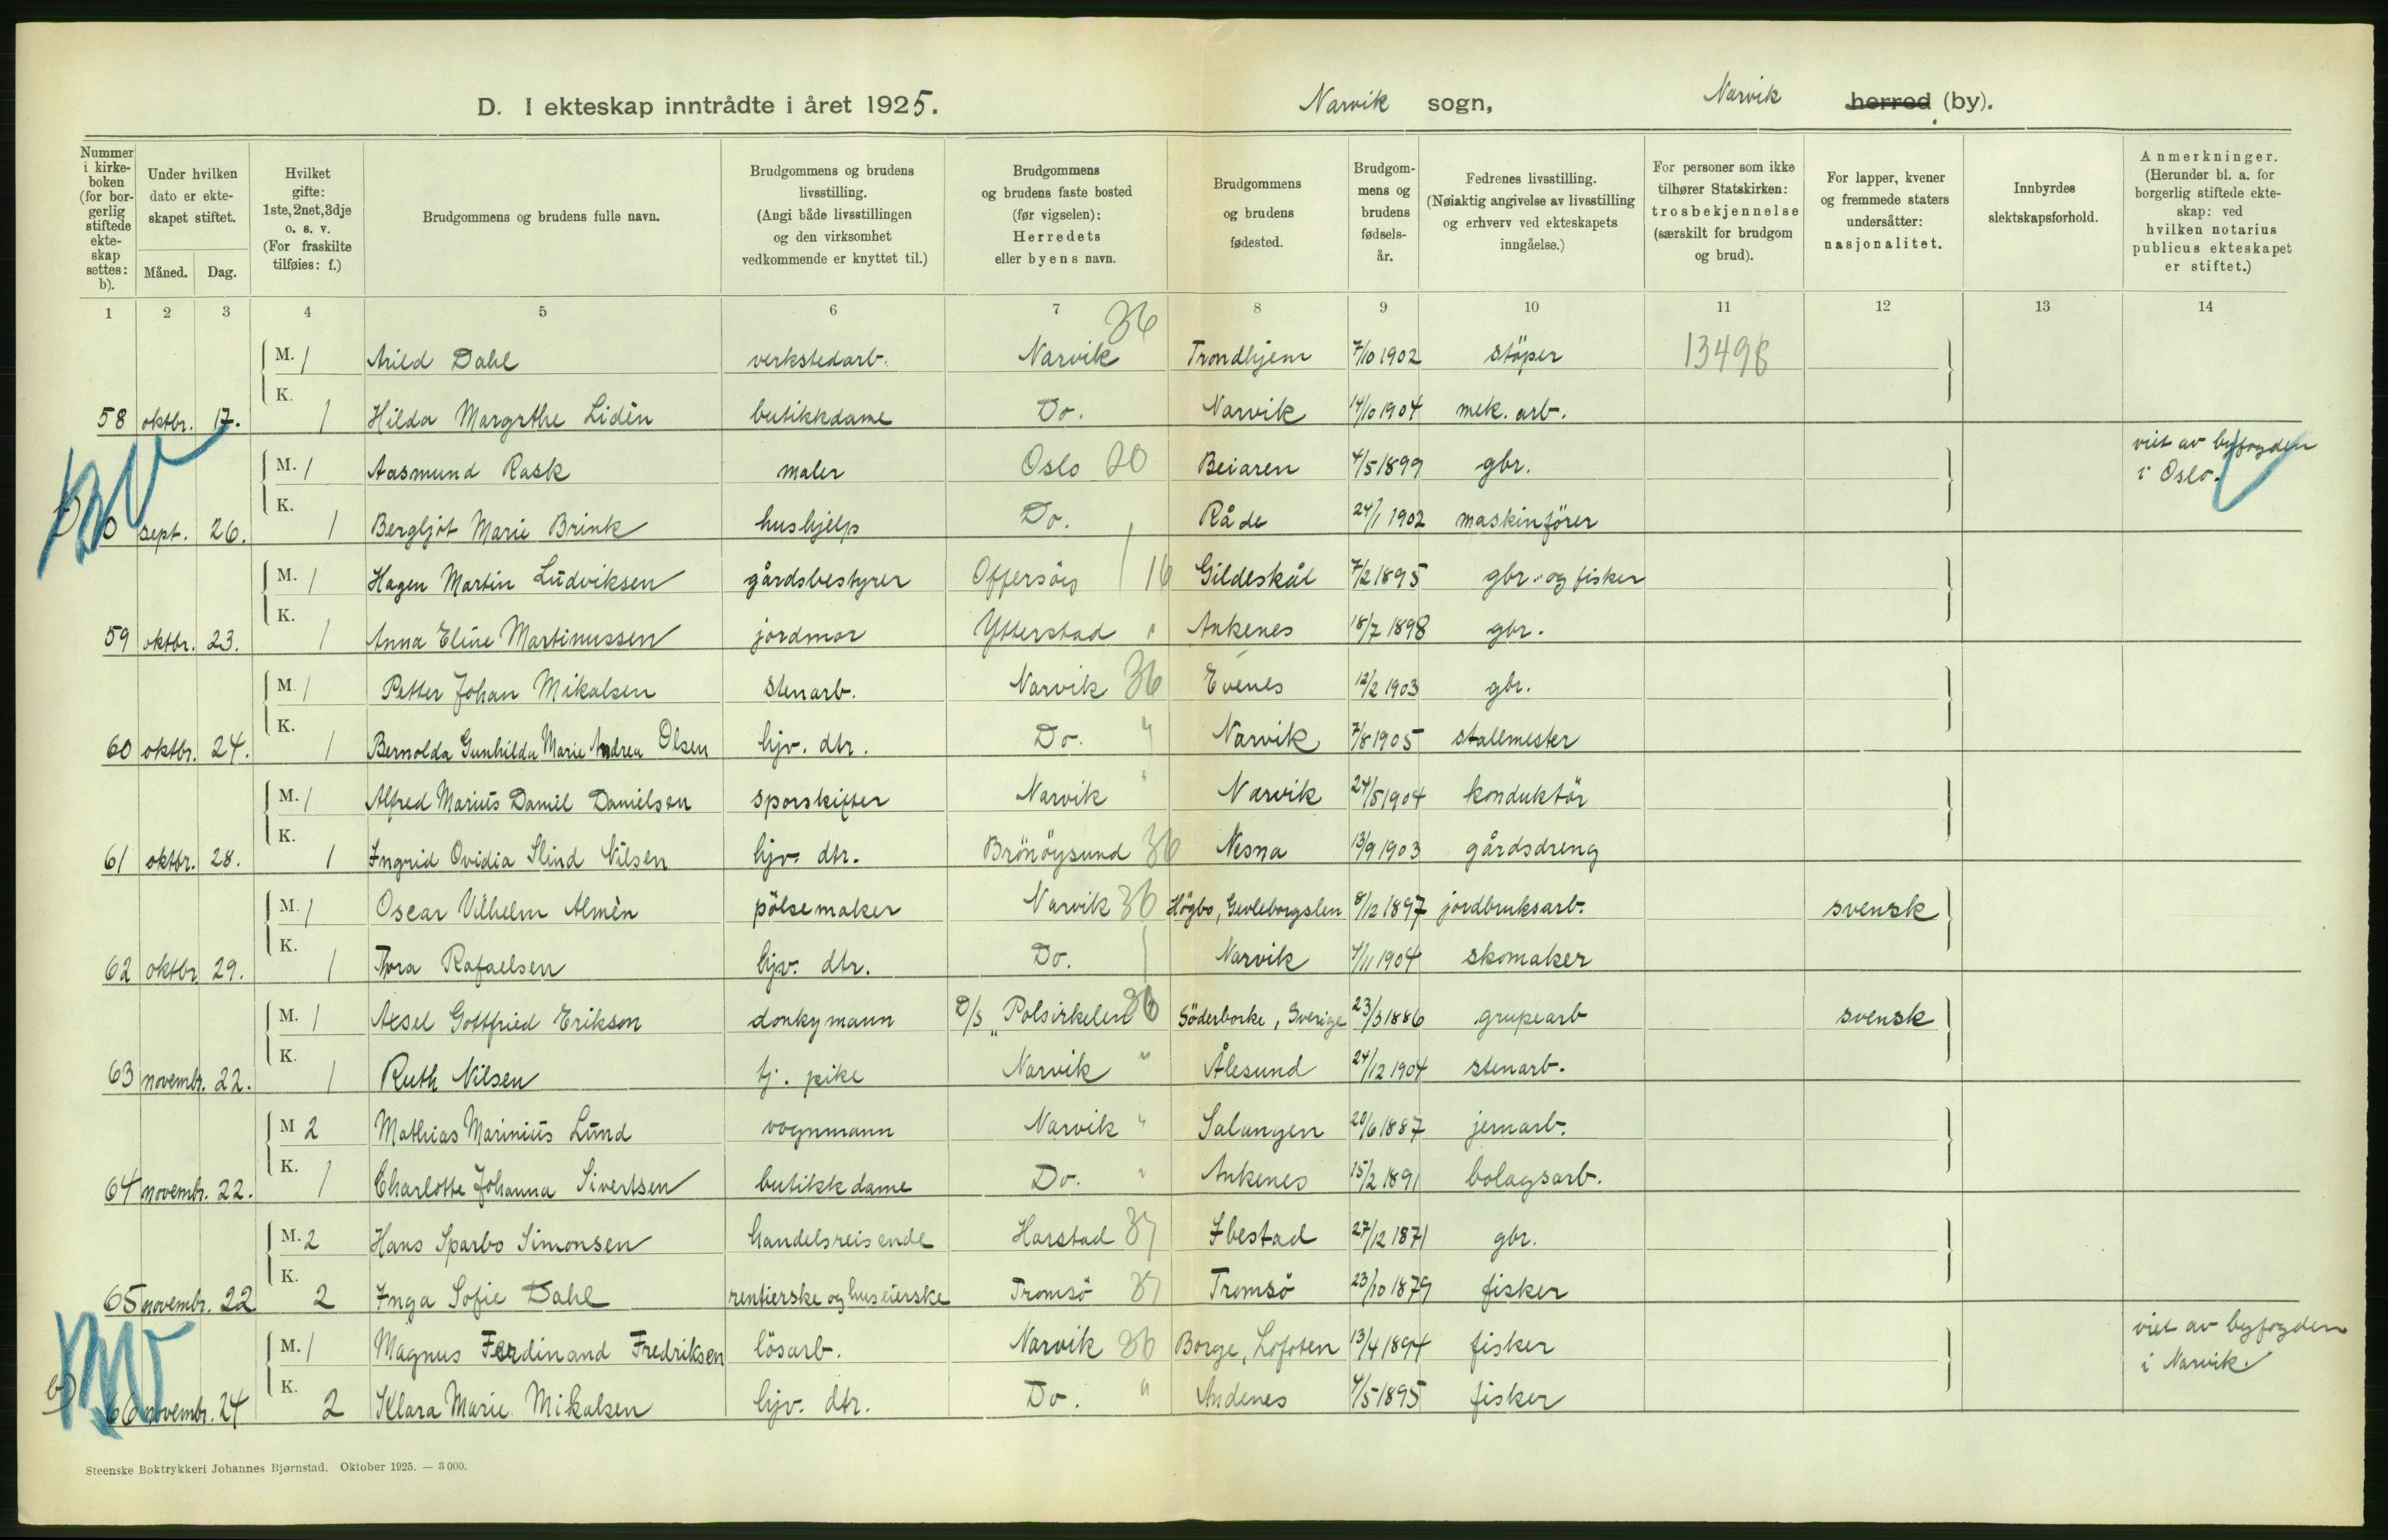 D. I ekteskap inntrådte i året 1925. Narvik sogn, Narvik herred (by).
Nummer i kirke-boken (for bor-gerlig stiftede ekte-skap settes: b).
Under hvilken dato er ekte-skapet stiftet.
Måned. Dag.
Hvilket gifte: 1ste, 2net, 3dje o. s. v. (For fraskilte tilføies: f.)
Brudgommens og brudens fulle navn.
Brudgommens og brudens livsstilling. (Angi både livsstillingen og den virksomhet vedkommende er knyttet til.)
Brudgommens og brudens faste bosted (før vigselen): Herredets eller byens navn.
Brudgommens og brudens fødested.
Brudgom-mens og brudens fødsels-år.
Fedrenes livsstilling. (Nøiaktig angivelse av livsstilling og erhverv ved ekteskapets inngåelse.)
For personer som ikke tilhører Statskirken: trosbekjennelse (særskilt for brudgom og brud).
For lapper, kvener og fremmede staters undersåtter: nasjonalitet.
Innbyrdes slektskapsforhold.
Anmerkninger. (Herunder bl. a. for borgerlig stiftede ekte-skap: ved hvilken notarius publicus ekteskapet er stiftet.)
1 2 3 4 5 6 7 8 9 10 11 12 13 14
M. 1 Arild Dahl verkstedarb. Narvik 36 Trondhjem 7/10 1902 støper 13498
58 oktbr. 17. K. 1 Hilda Margrthe Lidèn butikkdame Do. Narvik 14/10 1904 mek. arb.
M. 1 Aasmund Rask maler Oslo 20 Beiaren 4/5 1899 gbr. viet av byfogden i Oslo.
b) sept. 26. K. 1 Bergljot Marie Brink hushjelp Do. Råde 24/1 1902 maskinfører
M. 1 Hagen Martin Ludviksen gårdsbestyrer Offersøy 16 Gildeskål 7/2 1895 gbr. og fisker
59 oktbr. 23. K. 1 Anna Eline Martinussen jordmor Ytterstad " Ankenes 18/7 1898 gbr.
M. 1 Petter Johan Mikalsen stenarb. Narvik 36 Evenes 12/2 1903 gbr.
60 oktbr. 24. K. 1 Bernolda Gunhilda Marie Andrea Olsen hjv. dtr. Do. " Narvik 7/8 1905 stallmester
M. 1 Alfred Marius Daniel Danielsen sporskifter Narvik " Narvik 24/5 1904 konduktör
61 oktbr. 28. K. 1 Ingrid Ovidia Slind Nilsen hjv. dtr. Brönöysund 36 Nesna 13/9 1903 gårdsdreng
M. 1 Oscar Vilhelm Almèn pölsemaker Narvik 36 Högbo, Gevleborgslen 8/12 1897 jordbruksarb. svensk
62 oktbr. 29. K. 1 Thora Rafaelsen hjv. dtr. Do. Narvik 4/11 1904 skomaker
M. 1 Axsel Gottfried Erikson donkymann D/S "Polsirkelen" 36 Söderborke, Sverige 23/3 1886 grupearb svensk
63 novembr. 22. K. 1 Ruth Nilsen tj. pike Narvik " Ålesund 24/12 1904 stenarb.
M 2 Mathias Marinius Lund vognmann Narvik " Salangen 20/6 1887 jernarb.
64 novembr. 22. K. 1 Charlotte Johanna Sivertsen butikkdame Do. " Ankenes 15/2 1891 bolagsarb.
M. 2 Hans Sparbo Simonsen handelsreisende Harstad 37 Ibestad 27/12 1871 gbr.
65 novembr. 22 K. 2 Inga Sofie Dahl rentierske og huseierske Tromsö 37 Tromsö 23/10 1879 fisker
M. 1 Magnus Ferdinand Fredriksen lösarb. Narvik 36 Borge, Lofoten 13/4 1894 fisker viet av byfogden i Narvik.
b) 66 novembr. 24 K. 2 Klara Marie Mikalsen hjv. dtr. Do. " Andenes 4/5 1895 fisker
Steenske Boktrykkeri Johannes Bjørnstad. Oktober 1925. — 3 000.